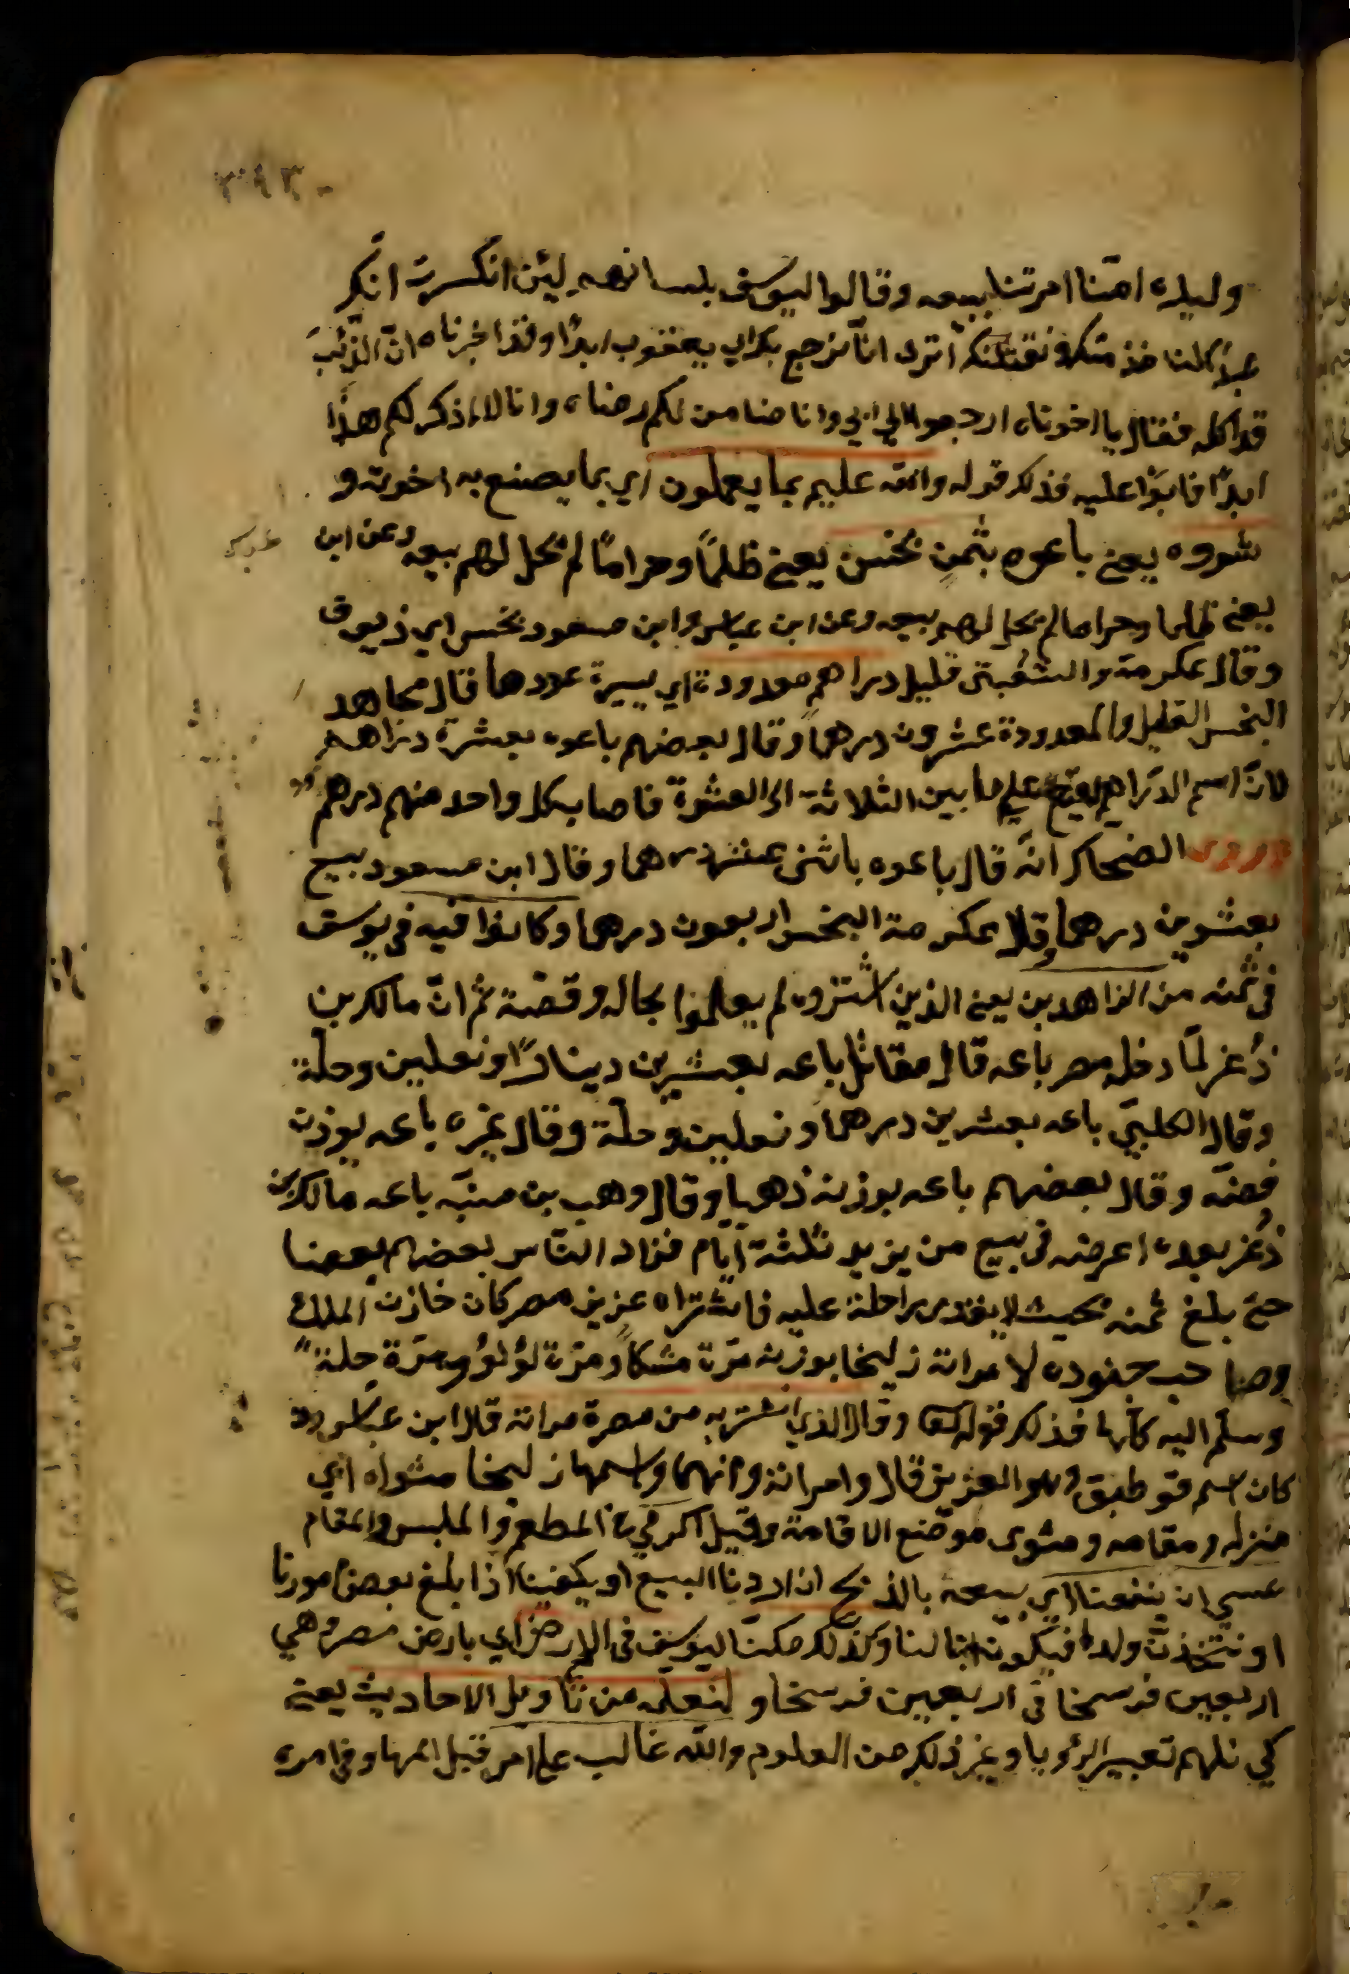 ٣٩٣
وليده امتنا امرتنا ببيعه وقالوا ليوسف بلسانهم لئن انكسرت انكر
عبد لنا خذ منك ونقتلنك أترى انا نرجع بك الى يعقوب ابدًا وقد اخبرناه انّ الذّئب
قد اكله فقال يا اخوتاه ارجعوا الى ابي وانا ضامن لكم رضاه وانا لا اذكر لكم هذا
ابدًا فابوا عليه فذلك قوله والله عليم بما يعملون اي بما يصنع به اخوته و
شروه يعني باعوه بثمنٍ بخس يعني ظلمًا وحرامًا لم يحل لهم بيعه وعن ابن
عباس
يعني ظلما وحراما لم يحل لهم بيعه وعن ابن عباس وابن مسعود بخس اي زيوف
وقال عكرمة والشعبي قليل دراهم معدودة اي يسيرة عددها قال مجاهد
البخس القليل والمعدودة عشرون درهما وقال بعضهم باعوه بعشرة دراهم
لانّ اسم الدّراهم يقع على ما بين الثلاثة الى العشرة فاصاب كل واحد منهم درهم
وروى الضحاك انّه قال باعوه باثنى عشر درهما وقال ابن مسعود بيع
بعشرين درهما وقال عكرمة البخس اربعون درهما وكانوا فيه في يوسف
في ثمنه من الزاهدين يعني الذين اشتروه لم يعلموا بحاله وقصّة ثم انّ مالك بن
ذُعر لمّا دخل مصر باعه قال مقاتل باعه بعشرين دينارًا ونعلين وحلّة
وقال الكلبيّ باعه بعشرين درهما ونعلين وحلّة وقال غيره باعه بوزن
فضّه وقال بعضهم باعه بوزنه ذهبا وقال وهب بن منبّه باعه مالك بن
ذُعر بعده اعرضه في بيع من يزيد ثلثة أيّام فزاد النّاس بعضهم بعضا
حتى بلغ ثمنه بحيث لا يقدر راحلة عليه فاشتراه عزيز مصر كان خازن الملك
وصاحب جنوده لامراته زليخا بوزنه مرّة مسكًا ومرّة لؤلؤ ومرّة حلة
وسلّم اليه كلّها فذلك قوله وقال الذي اشتريه من مصر لامراته قال ابن عباس
كان اسم قوطيق وهو العزيز قال وامراته واسمها زليخا مثواه اي
منزله ومقامه ومثوى موضع الاقامة وقيل اكرميه في المطعم والملبس والمقام
عسى ان ينفعنا اي ببيعه بالذبح ان اردنا البيع او يكفينا اذا بلغ بعض امورنا
او نتّخذه ولدا فيكون ابنا لنا وكذلك مكنّا ليوسف في الارض اي بارض مصر وهي
اربعين فرسخا في اربعين فرسخا ولنعلّمه من تأويل الاحاديث يعني
كي نلهم تعبير الرؤيا وغير ذلك من العلوم والله غالب على امر قيل الها في امره